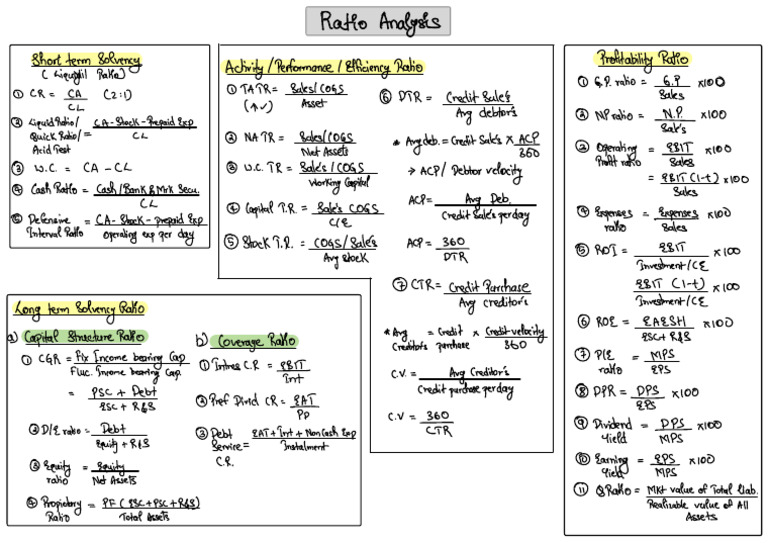 Ratio Analysis
Short term Solvency
(Liquidil Ratio)
① CR = CA / CL (2:1)
② Liquid Ratio/ Quick Ratio/ Acid Test = CA - Stock - Prepaid Exp / CL
③ W.C. = CA - CL
④ Cash Ratio = Cash/Bank & Mrk Secu. / CL
⑤ Defensive Interval Ratio = CA - Stock - prepaid Exp / Operating exp per day
Long term Solvency Ratio
a) Capital Structure Ratio
① CGR = Fix Income bearing Cap / Fluc. Income bearing Cap.
= PSC + Debt / ESC + R&S
② D/E ratio = Debt / Equity + R&S
③ Equity ratio = Equity / Net Assets
④ Propiotory Ratio = PF (ESC + PSC + R&S) / Total Assets
b) Coverage Ratio
① Intres C.R = EBIT / Int
② Pref Divid CR = EAT / PD
③ Debt Service C.R. = EAT + Int + Non Cash Exp / Instalment
Activity / Performance / Efficiency Ratio
① TATR = Sales/COGS / Asset
(↑✓)
② NATR = Sales/COGS / Net Assets
③ W.C. TR = Sale's / COGS / Working Capital
④ Capital T.R. = Sale's COGS / C/E
⑤ Stock T.R. = COGS/Sale's / Avg Stock
⑥ DTR = Credit Sale's / Avg debtor's
* Avg deb. = Credit Sale's × ACP / 360
→ ACP / Debtor velocity
ACP = Avg Deb. / Credit Sale's per day
ACP = 360 / DTR
⑦ CTR = Credit Purchase / Avg creditor's
* Avg Creditor's = Credit purchase × Credit velocity / 360
C.V. = Avg Creditor's / Credit purchase per day
C.V = 360 / CTR
Profitability Ratio
① G.P. ratio = G.P / Sales ×100
② NP ratio = N.P. / Sale's ×100
② Operating Profit ratio = EBIT / Sales ×100
= EBIT (1-t) / Sales ×100
④ Expenses ratio = Expenses / Sales ×100
⑤ ROI = EBIT / Investment/CE ×100
EBIT (1-t) / Investment/CE ×100
⑥ ROE = EAESH / ESC + R&S ×100
⑦ P/E ratio = MPS / EPS
⑧ DPR = DPS / EPS ×100
⑨ Dividend Yield = DPS / MPS ×100
⑩ Earning Yield = EPS / MPS ×100
⑪ Q Ratio = Mkt value of Total Liab. / Realivable value of All Assets